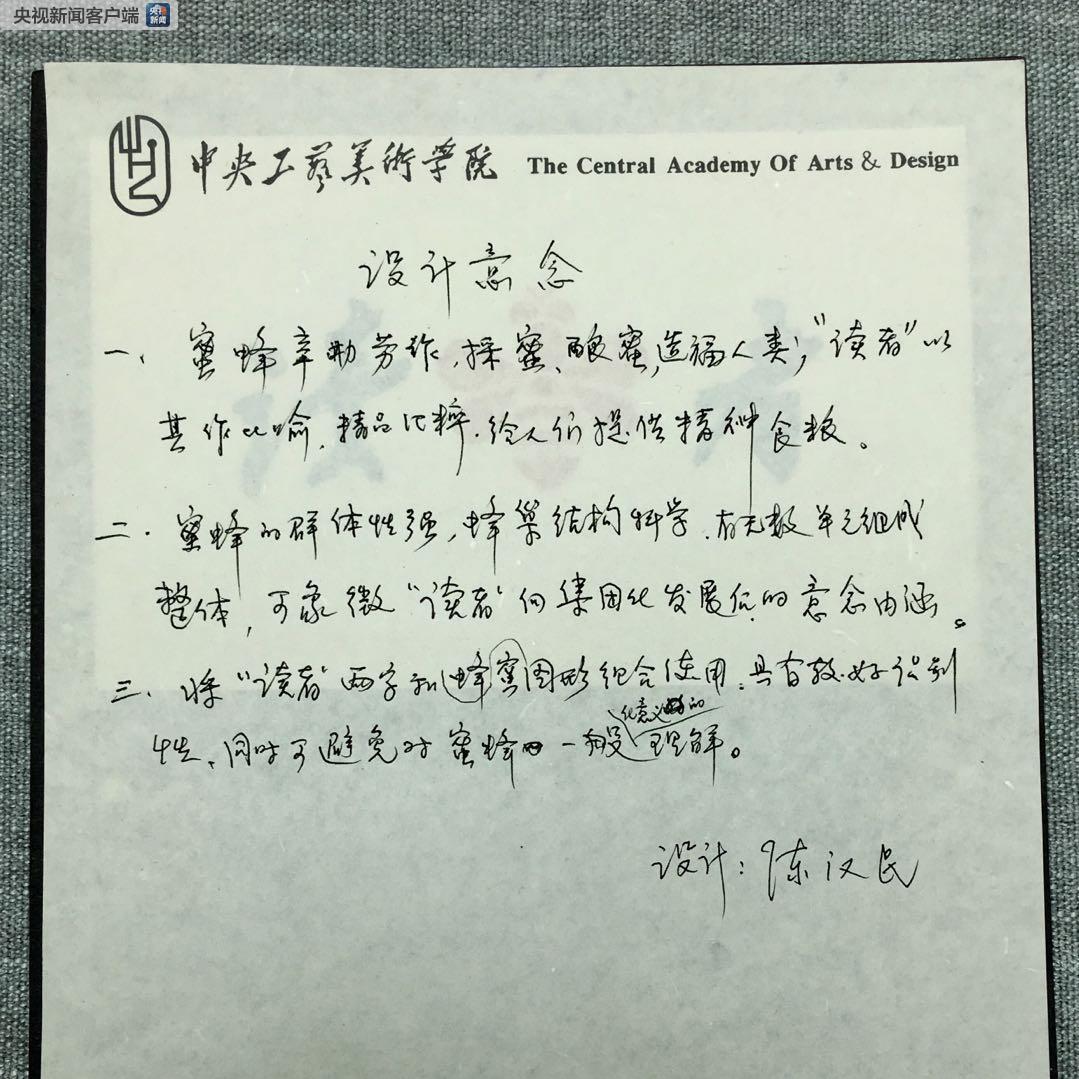 央视新闻客户端 央视新闻
中央工艺美術学院 The Central Academy Of Arts & Design
设计意念
一、蜜蜂辛勤劳作,採蜜、酿蜜,造福人类;“读者”以
其作比喻,精品化粹.给人们提供精神食粮。
二.蜜蜂的群体性强,蜂巢结构科学.有无数单元组成
整体,可象徵“读者”向集团化发展的意念内涵。
三.将“读者”两字和蜂蜜图形组合使用.具有较好识别
性、同时可避免对蜜蜂一般化意义的理解。
设计:陈汉民